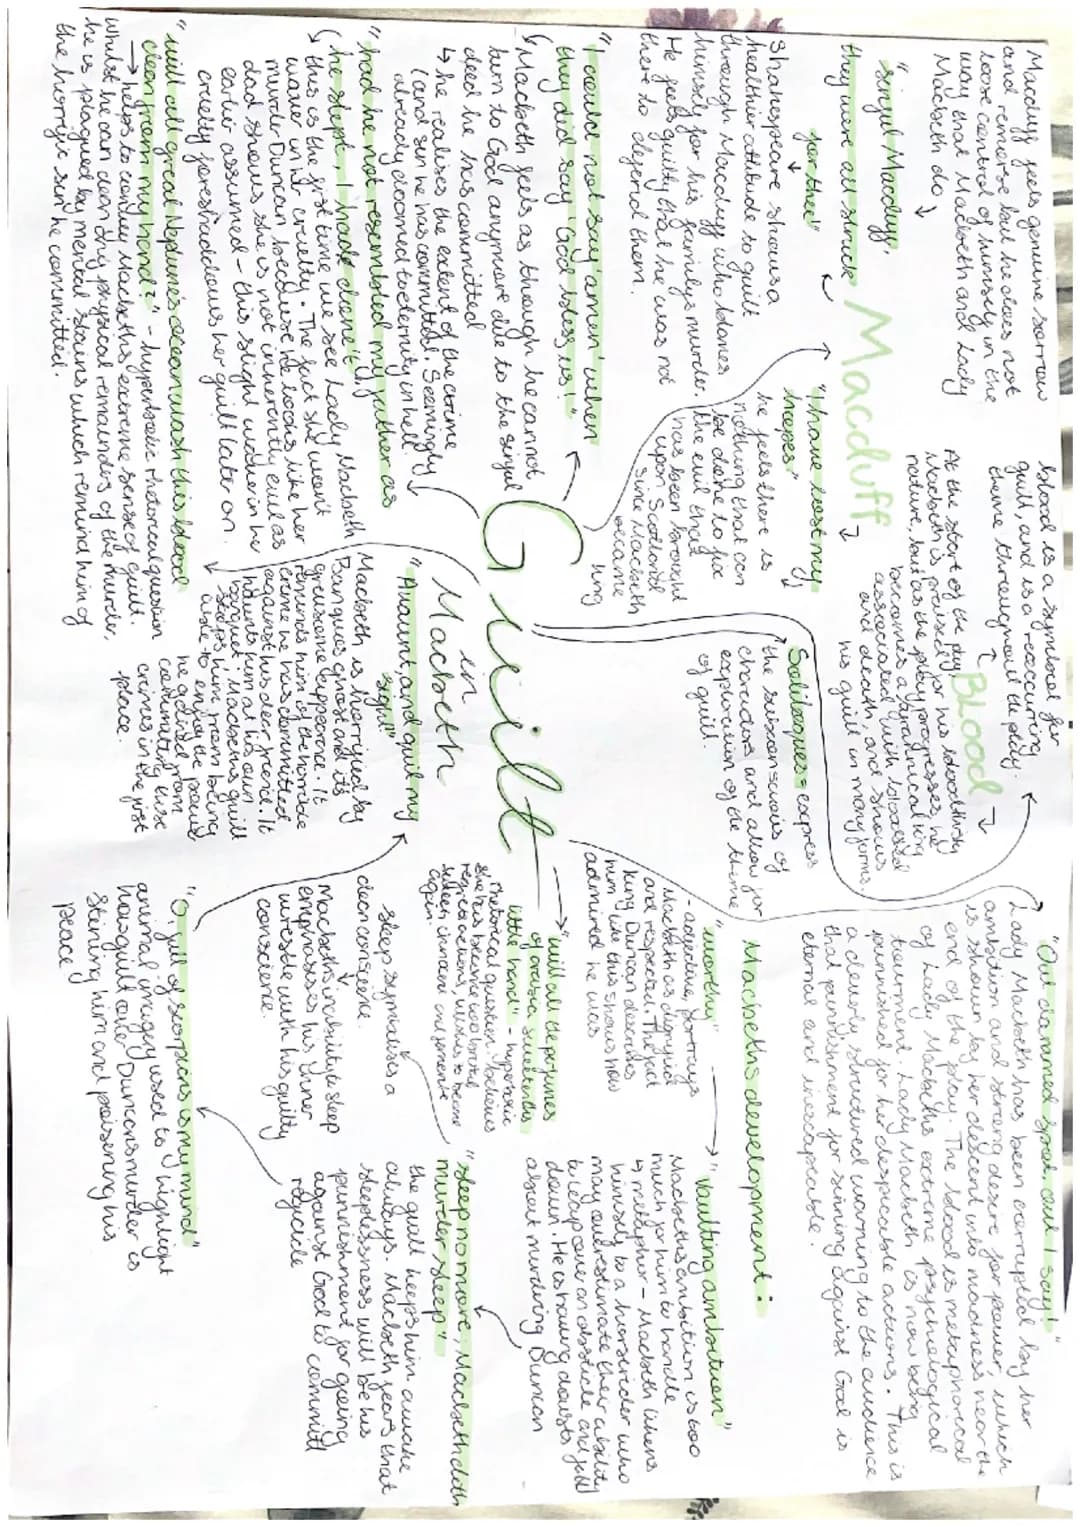 Guilt
in
Macbeth
Macduff feels genuine sorrow
and remorse but he does not
loose control of himself in the
way that Macbeth and Lady
Macbeth do
"sinful Macduff,
they were all struck
for thee"
Macduff
Shakespeare shows a
healthier attitude to guilt
through Macduff who blames
himself for his family's murder.
He feels guilty that he was not
there to defend them.
"I have lost my
hopes"
he feels there is
nothing that can
be done to fix
the evil that
has been brought
upon Scotland
since Macbeth
became
king
blood is a symbol for
guilt, and is a reoccurring
theme throughout the play.
Blood
At the start of the play,
Macbeth is praised for his bloodthirsty
nature, but as the play progresses, he
becomes a tyrannical king
associated with blood
and death, and shows
his guilt in many forms.
Soliloques = express
the subconscious of
characters and allow for
exploration of the theme
of guilt.
"Out damned spot, out I say!"
Lady Macbeth has been corrupted by her
ambition and strong desire for power, which
is shown by her descent into madness near the
end of the play. The blood is metaphorical
of Lady Macbeths extreme psychological
tourment. Lady Macbeth is now being
punnished for her despicable actions. This is
a cleverly structured warning to the audience
that punnishment for sinning against God is
eternal and inescapable.
"I could not say 'amen' when
they did say 'God bless us!'"
Macbeth feels as though he cannot
turn to God anymore due to the sinful
deed he has committed
↳ he realises the extent of the crime
(and sin he has committed. Seemingly
already doomed to eternity in hell.
"had he not resembled my father as
he slept, I had done't"
this is the first time we see Lady Macbeth
waver in her cruelty. The fact she won't
murder Duncan because he looks like her
dad shows she is not inherently evil as
earlier assumed - this slight waiver in her
cruelty foreshaddows her guilt later on.
"will all great Neptune's ocean wash this blood
clean from my hand?" - hyperbolic rhetorical question
→ helps to convey Macbeths extreme sense of guilt.
whilst he can clean any physical remainders of the murder,
he is plagued by mental stains which remind him of
the horrific sin he committed.
"Avaunt, and quit my
sight"
Macbeth is horrified by
Banquos ghost and its
gruesome appearance. It
reminds him of the horrible
crime he has committed
against his dear friend. It
haunts him at his own
banquet. Macbeth's guilt
stops him from being
able to enjoy the power
he gained from
committing these
crimes in the first
place.
"will all the perfumes
of arabia sweeten this
little hand" - hyperbolic
rhetorical question. believes
she has become too brutal
regrets actions, wishes to become
again.
Macbeths development:
"worthy"
- adjective, portrays
Macbeth as dignified
and respected. The fact
King Duncan describes
him like this shows how
admired he was
"Vaulting ambition"
Macbeths ambition is too
much for him to handle
↳ metaphor - Macbeth likens
himself to a horserider who
may overestimate their ability
to leap over an obstacle and fall
down. He is having doubts
about murdering Duncan
"Sleep no more, Macbeth doth
murder sleep"
the guilt keeps him awake
always. Macbeth fears that
sleeplessness will be his
punnishment for going
against God to committ
regicide
sleep symbolises a
clean conscience.
Macbeths inability to sleep
emphasises his inner
unrestle with his guilty
conscience.
"O, full of scorpions is my mind"
animal imagery used to highlight
how guilt over Duncans murder is
stinging him and poisening his
peace